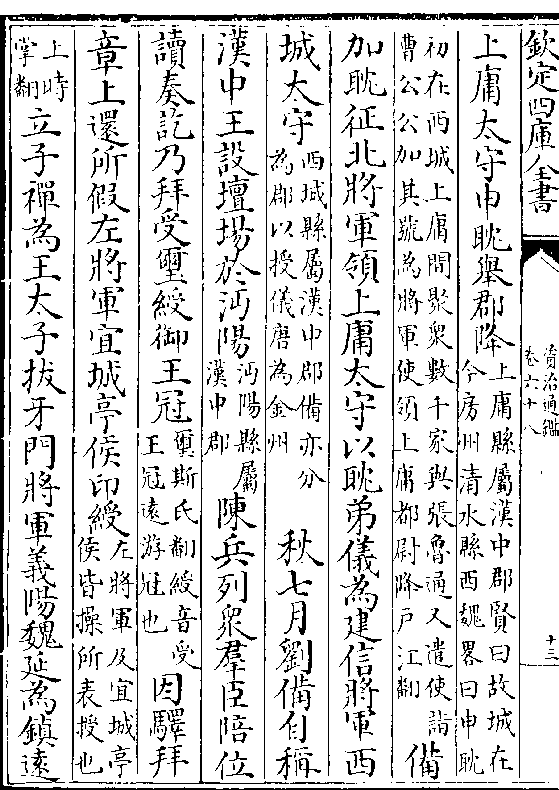 欽定四庫全書
資治通鑑
卷六十八
十三
上庸太守申耽舉郡降上庸縣屬漢中郡賢曰故城在今房州清水縣西魏畧曰申耽
初在西城上庸間聚衆數千家與張魯通又遣使詣曹公公加其號為將軍使領上庸都尉降户江翻備
加耽征北將軍領上庸太守以耽弟儀為建信將軍西
城太守西城縣屬漢中郡備亦分為郡以授儀唐為金州秋七月劉備自稱
漢中王設壇場於沔陽沔陽縣屬漢中郡陳兵列衆羣臣陪位
讀奏訖乃拜受璽綬御王冠璽斯氏翻綬音受王冠遠游冠也因驛拜
章上還所假左將軍宜城亭侯印綬左將軍及宜城亭侯皆操所表授也
上時掌翻立子禪為王太子拔牙門將軍義陽魏延為鎮遠